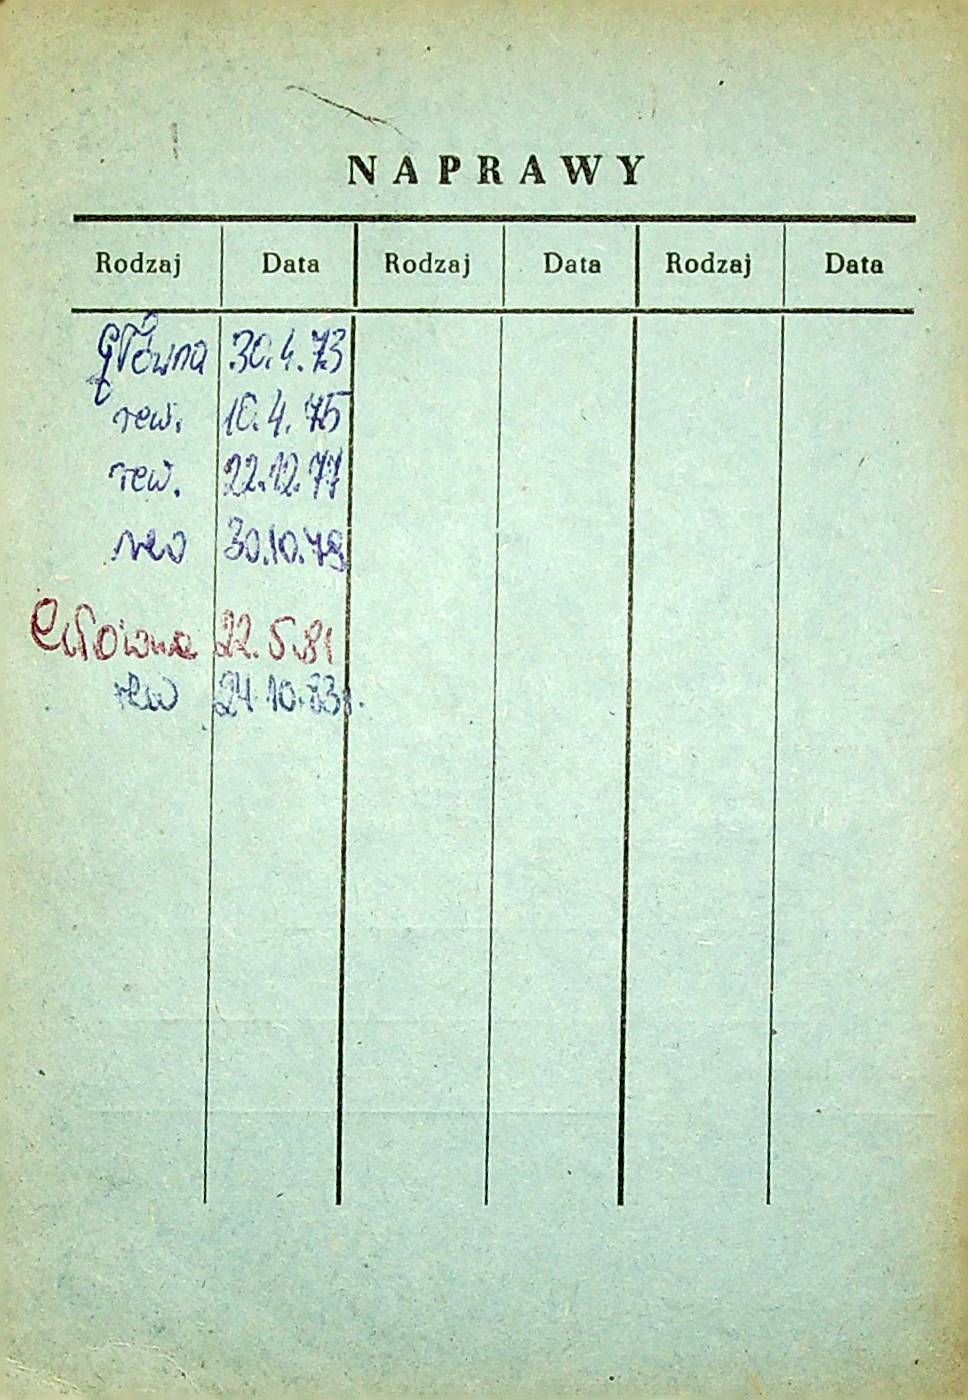 NAPRAWY
Rodzaj Data Rodzaj Data Rodzaj Data
główna 30.4.73
rew. 10.4.75
rew. 22.12.77
rew 30.10.79
Główna 22.5.81
rew 24.10.83r.